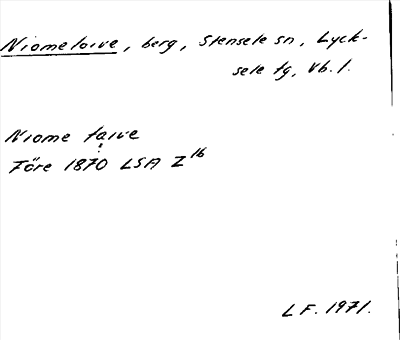 Niometoive, berg, Stensele sn, Lyck-
sele tg, Vb. l.
Niome taive
Före 1870 LSA Z 16
L F. 1971.